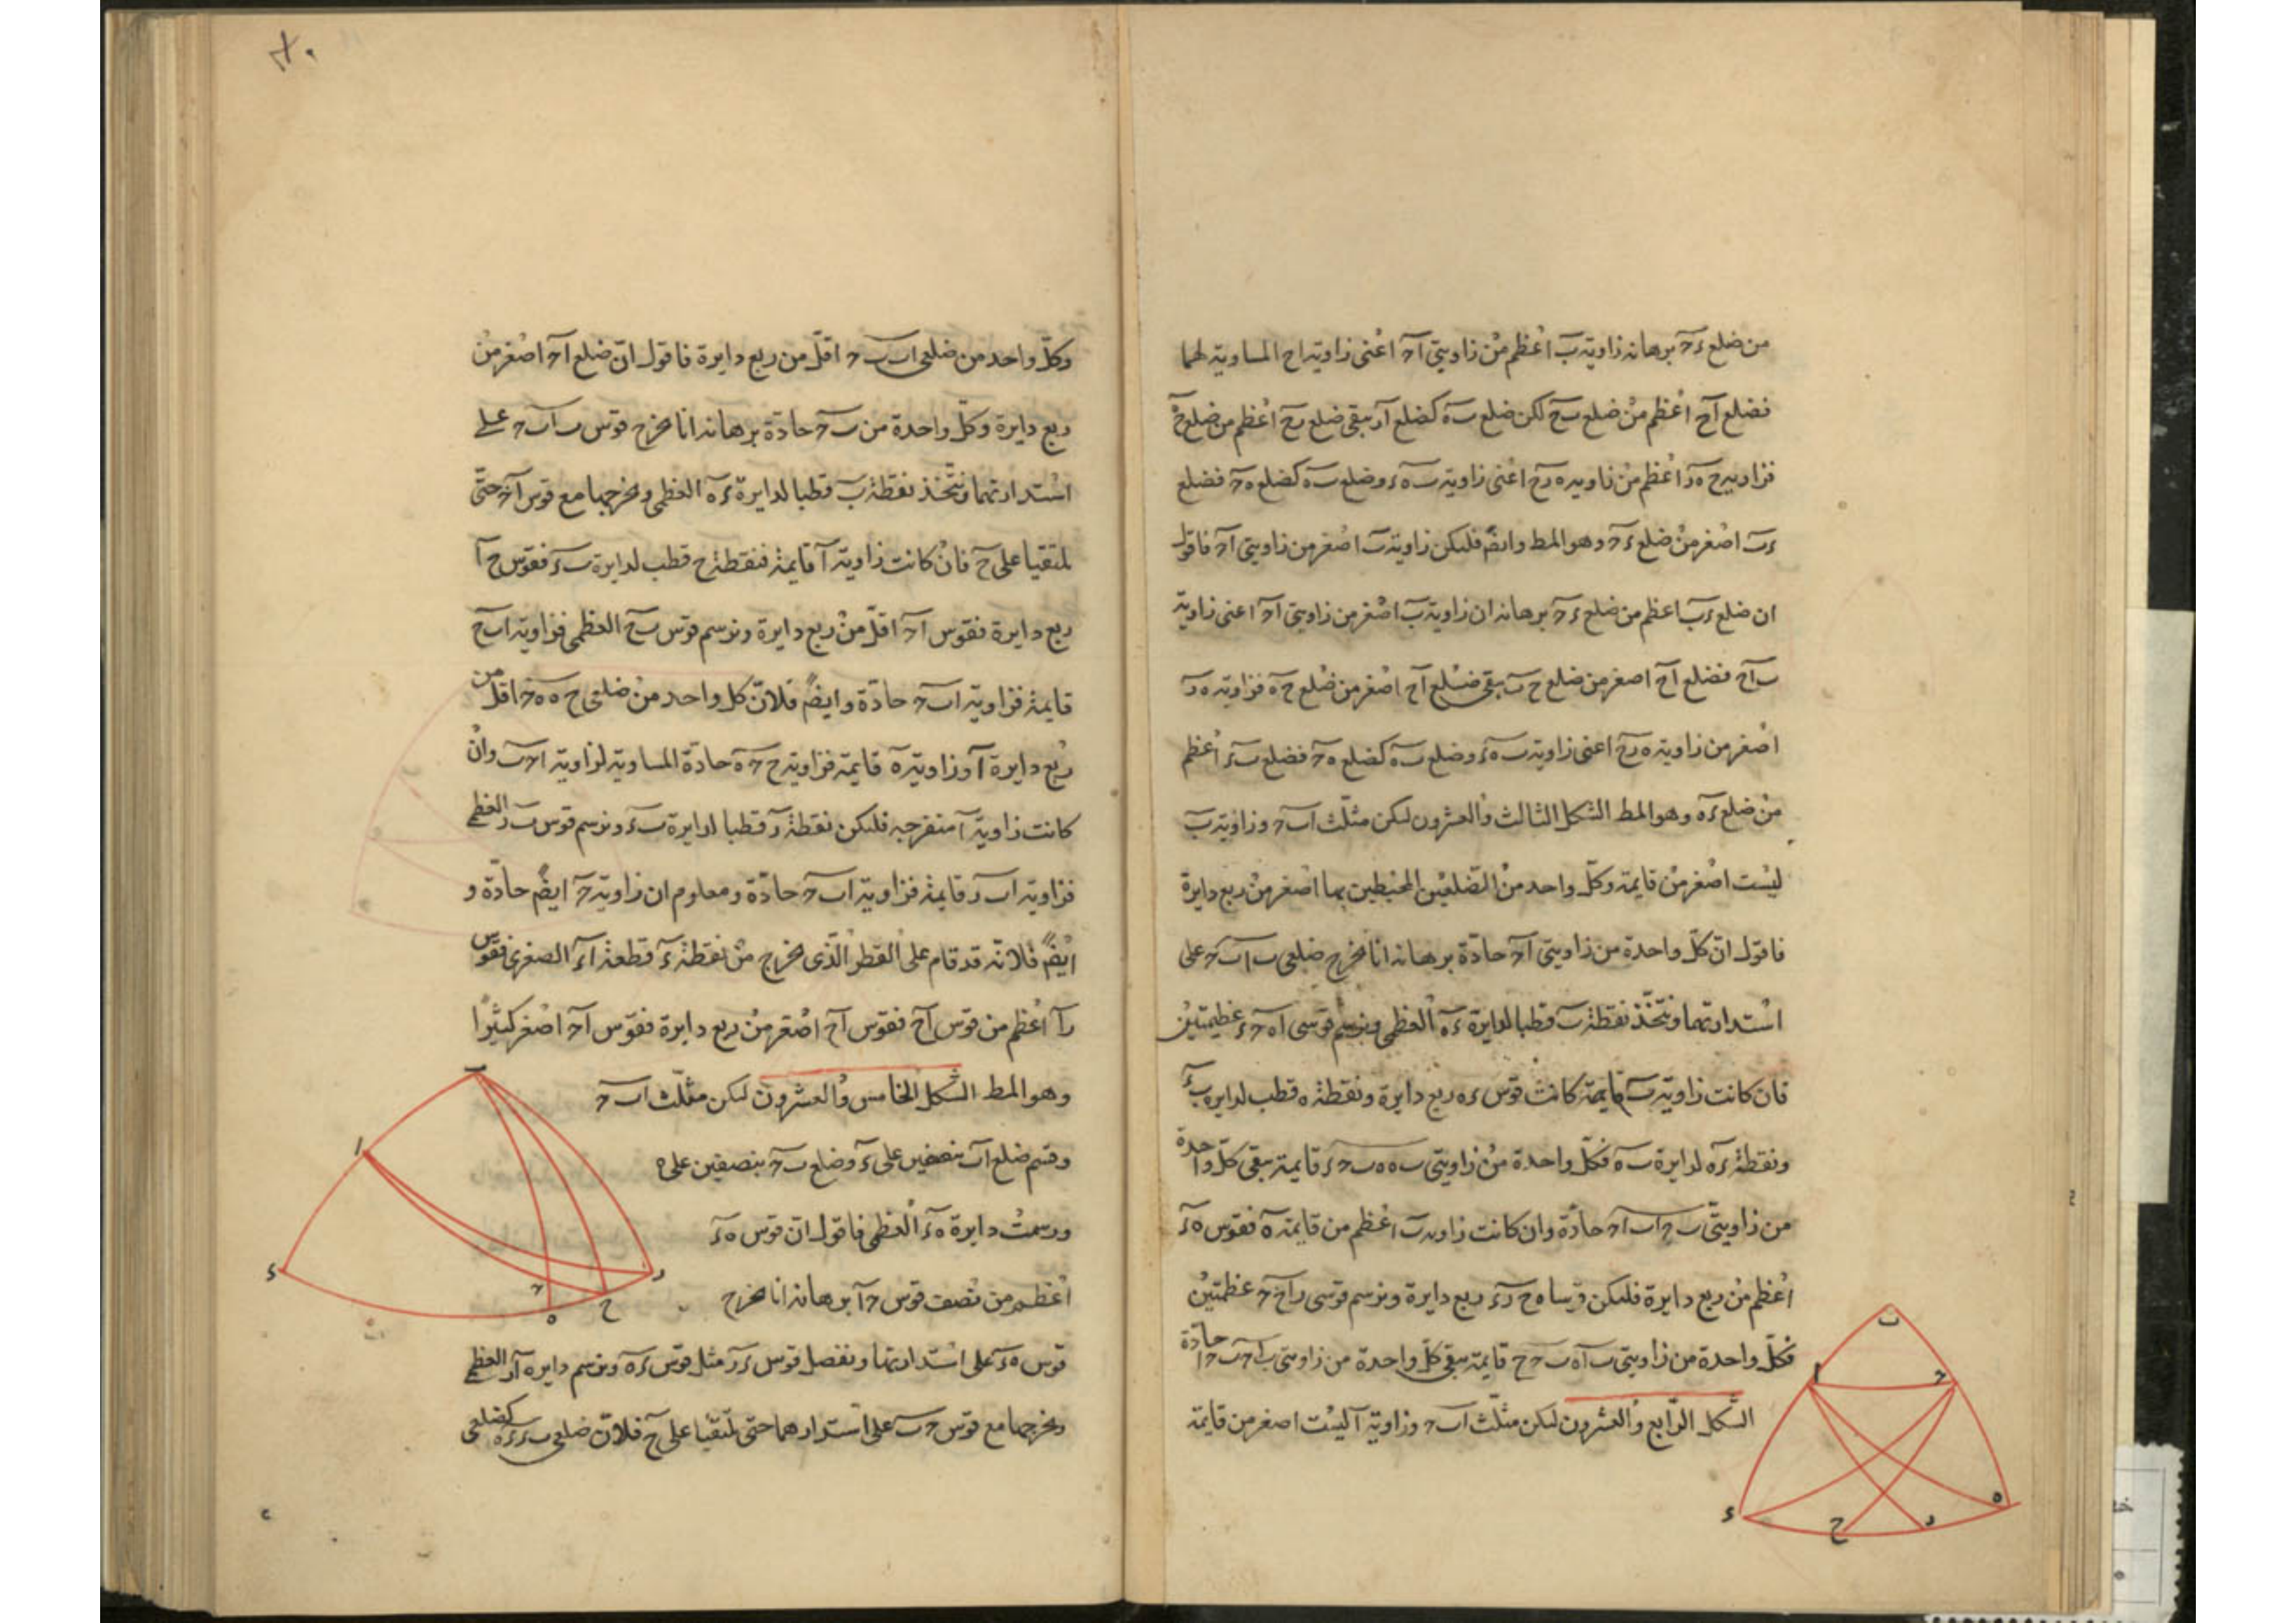 من ضلع ءح برهانه زاوية ب اعظم من زاويتي اح اعنى زاوية اح المساوية لهما
فضلع اح اعظم من ضلع بح لكن ضلع به كضلع ار يبقى ضلع رح اعظم من ضلع
فزاوية ح ه ر اعظم من زاوية ه رح اعنى زاوية ب ه ء وضلع ب ه كضلع ه ح فضلع
ءب اصغر من ضلع ءح وهو المط وايضً فليكن زاوية ب اصغر من زاويتي اح فاقول
ان ضلع ءب اعظم من ضلع ءح برهانه ان زاوية ب اصغر من زاويتي اح اعنى زاوية
ب اح فضلع اح اصغر من ضلع ح ب يبقى ضلع اح اصغر من ضلع ح ه فزاوية ه ر
اصغر من زاوية ه رح اعنى زاوية ب ه ء وضلع ب ه كضلع ه ح فضلع ب ء اعظم
من ضلع ءه وهو المط الشكل الثالث والعشرون ليكن مثلث اب ح وزاوية ب
ليست اصغر من قايمة وكل واحد من الضلعين المحيطين بها اصغر من ربع دايرة
فاقول ان كل واحدة من زاويتي اح حادة برهانه انا نخرج ضلعى ب ا ب ح على
استدارتهما ونتخذ نقطة ب قطبا لدايرة ءه العظمى ونرسم قوسى اه ح ء عظيمتين
فان كانت زاوية ب قايمة كانت قوس ءه ربع دايرة ونقطة ه قطب لدايرة ب ء
ونقطة ء لدايرة ب ه فكل واحدة من زاويتي ب ه ه ب ح ء قايمة يبقى كل واحدة
من زاويتي ب ح اب اح حادة وان كانت زاوية ب اعظم من قايمة فقوس ه ء
اعظم من ربع دايرة فليكن قوسا ه ح رء ربع دايرة ونرسم قوسى را ح ح عظمتين
فكل واحدة من زاويتي ب اه ب ح ح قايمة يبقى كل واحدة من زاويتي ب اح ب ح ا حادة
الشكل الرابع والعشرون ليكن مثلث اب ح وزاوية ا ليست اصغر من قايمة
وكل واحد من ضلعى اب ب ح اقل من ربع دايرة فاقول ان ضلع اح اصغر من
ربع دايرة وكل واحدة من ب ح حادة برهانه انا نخرج قوس ب ا ب ح على
استدارتهما ونتخذ نقطة ب قطبا لدايرة ءه العظمى ونخرجها مع قوس اح حتى
يلتقيا على ح فان كانت زاوية ا قايمة فنقطة ح قطب لدايرة ب ء فقوس ح ا
ربع دايرة فقوس اح اقل من ربع دايرة ونرسم قوس ب ح العظمى فزاوية اب ح
قايمة فزاوية اب ح حادة وايضً فلان كل واحد من ضلعى ح ه ه ح اقل من
ربع دايرة وزاوية ه قايمة فزاوية ح ح ه حادة المساوية لزاوية اح ب وان
كانت زاوية ا منفرجه فليكن نقطة ر قطبا لدايرة ب ء ونرسم قوس ب ر العظمى
فزاوية اب ر قايمة فزاوية اب ح حادة ومعلوم ان زاوية ح ايضً حادة و
ايضً فلانه قد قام على القطر الذى يخرج من نقطة ء قطعة اء الصغرى فقوس
را اعظم من قوس اح فقوس اح اصغر من ربع دايرة فقوس اح اصغر كثيرا
وهو المط الشكل الخامس والعشرون ليكن مثلث اب ح
وقسم ضلع اب بنصفين على ء وضلع ب ح بنصفين على ه
ورسمت دايرة ه ء العظمى فاقول ان قوس ه ء
اعظم من نصف قوس ح ا برهانه انا نخرج
قوس ه ء على استدارتها ونفصل قوس ء ر مثل قوس ء ه ونرسم دايرة ار العظمى
ونخرجها مع قوس ح ب على استدارهما حتى يلتقيا على ح فلان ضلعى ب ء ء ه كضلعى